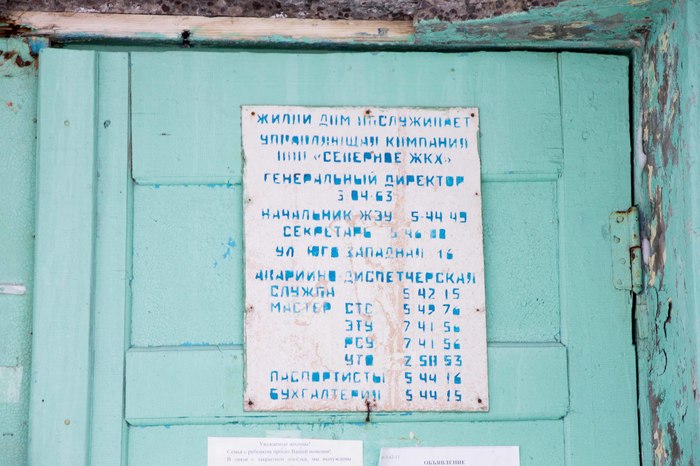 ЖИЛОЙ ДОМ ОБСЛУЖИВАЕТ
УПРАВЛЯЮЩАЯ КОМПАНИЯ
ООО «СЕВЕРНОЕ ЖКХ»
ГЕНЕРАЛЬНЫЙ ДИРЕКТОР
5-04-63
НАЧАЛЬНИК ЖЭУ 5-44-49
СЕКРЕТАРЬ 5 46 00
УЛ ЮГО ЗАПАДНАЯ 16
АВАРИЙНО-ДИСПЕТЧЕРСКАЯ
СЛУЖБА 5 42 15
МАСТЕР СТС 5 49 76
ЭТУ 7 41 56
РСУ 7 41 56
УТО 2 50 53
ПАСПОРТИСТЫ 5 44 16
БУХГАЛТЕРИЯ 5 44 15
Уважаемые жители!
Семья с ребенком просит Вашей помощи!
В связи с закрытием посёлка, мы вынуждены
ОБЪЯВЛЕНИЕ